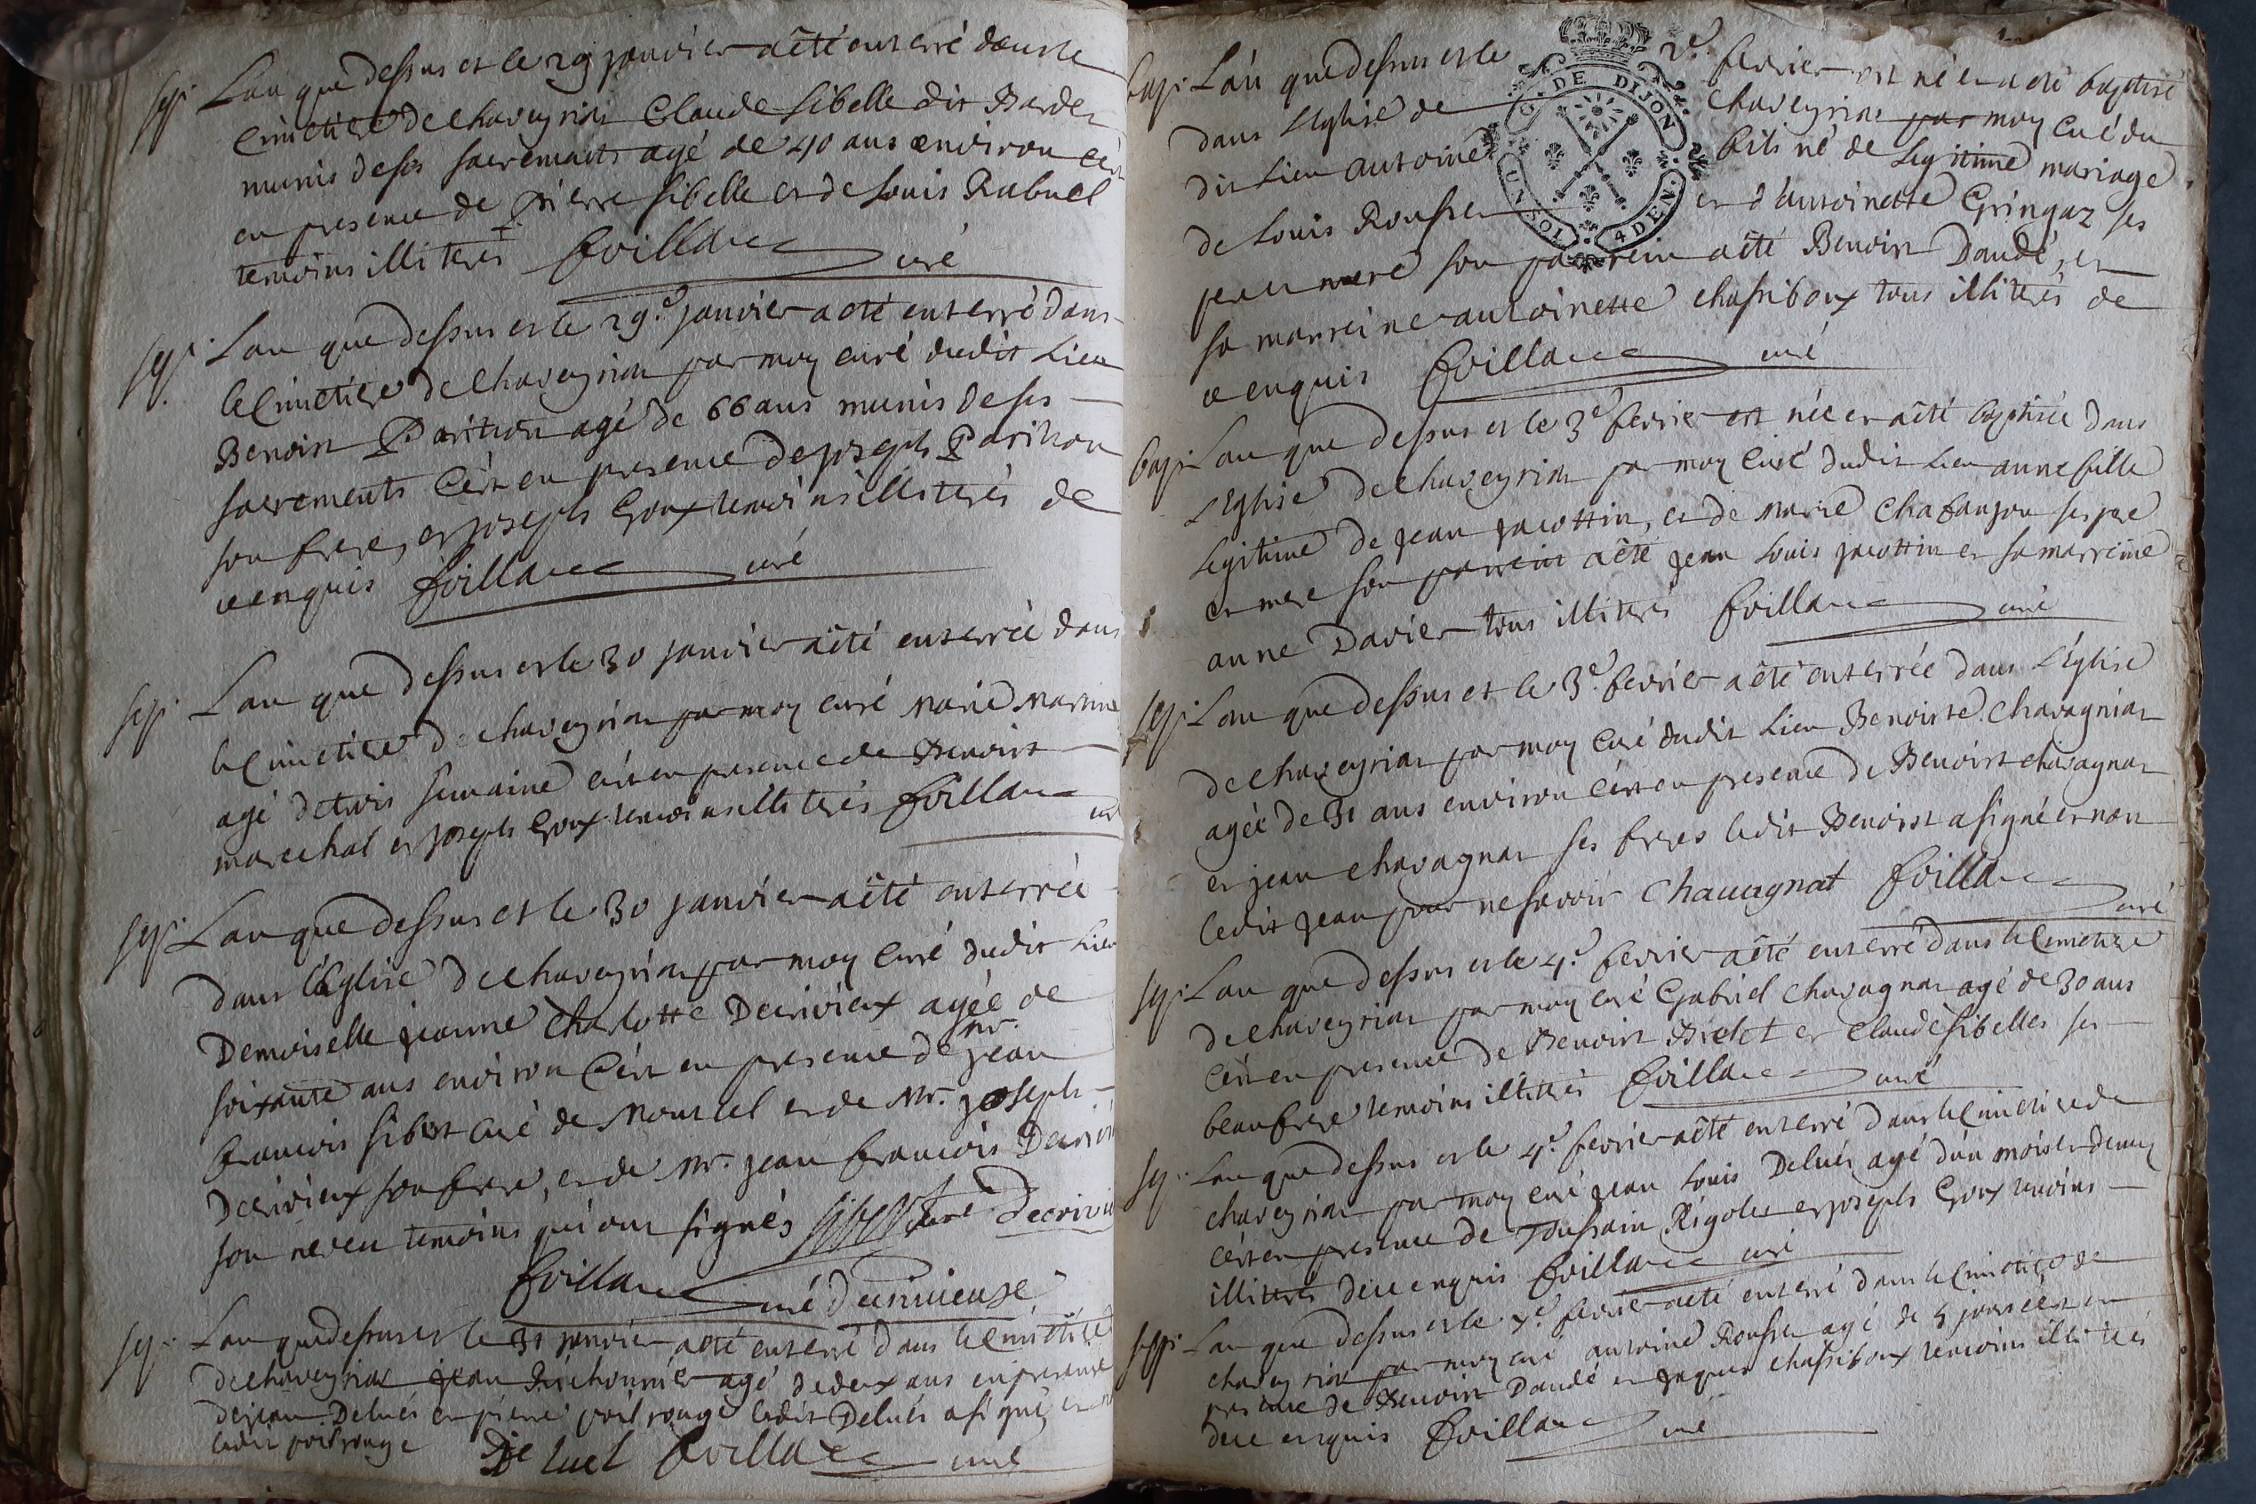 sep. Lan que dessus et le 29 janvier a été enterré dans le
Cimetiere de chaveyriat Claude Sibelle dit Bardet
munis de ses sacrements agé de 40 ans environ c'est
en presence de pierre Sibelle et de Louis Rabuel
temoins illiterés foillard curé
sep. Lan que dessus et le 29e janvier a été enterré dans
le Cimetiere de chaveyriat par moy curé dudit Lieu
Benoist agé de 66 ans munis de ses
sacrements C'est en presence de joseph
son frere, et joseph Goux temoins illiterés de
ce enquis foillard curé
sep. Lan que dessus et le 30 janvier a été enterrée dans
le Cimetiere de chaveyriat par moy curé Marie Martine
agé de trois semaine c'est en presence de Benoist
marechal et joseph Goux temoins illiterés foillard
curé
sep. Lan que dessus et le 30 janvier a été enterrée
dans l'Eglise de chaveyriat par moy curé dudit Lieu
Demoiselle jeanne Charlotte Decrivieux agée de
soixante ans environ C'est en presence de Mr. jean
francois Sibert curé de Moncel et de Mr. joseph
Decrivieux son frere, et de Mr. jean francois
son neveu temoins qui ont signés Sibert curé Decrivieu
foillard curé Decrivieuse
sep. Lan que dessus et le 31 janvier a été enterré dans le Cimetiere
de chaveyriat jean agé de deux ans en presence
de jean Delués et pierre poil rouge ledit Delués a signé et non
ledit poil rouge De luel foillard curé
bap. Lan que dessus et le 2e. fevrier est né et a été baptisé
dans L'Eglise de chaveyriat par moy Curé du
dit Lieu antoine fils né de Legitime mariage
de Louis Rousset et d'antoinette Gringaz ses
pere et mere son parrein a été Benoist Daudé, et
sa marreine antoinette chassiboux tous illiterés de
ce enquis foillard curé
G. DE DIJON
UN SOL 4 DEN.
bap. Lan que dessus et le 3e fevrier est née et a été baptisée dans
L'Eglise de chaveyriat par moy Curé dudit Lieu anne fille
Legitime de jean jacottin, et de Marie Chabanjon ses pere
et mere son parrein a été jean Louis jacottin et sa marreine
anne Davier tous illiterés foillard curé
sep. Lan que dessus et le 3e. fevrier a été enterrée dans L'Eglise
de chaveyriat par moy Curé dudit Lieu Benoiste Chavagniat
agée de 31 ans environ C'est en presence de Benoist chavagnat
et jean chavagnat ses freres ledit Benoist a signé et non
ledit jean pour ne savoir Chauagnat foillard
curé
sep. Lan que dessus et le 4e. fevrier a été enterré dans le Cimetiere
de chaveyriat par moy curé Gabriel chavagnat agé de 30 ans
C'est en presence de Benoist et Claude Sibelles ses
beaufrere temoins illiterés foillard curé
sep. Lan que dessus et le 4e fevrier a été enterré dans le Cimetiere de
chaveyriat par moy curé jean Louis Delués agé d'un mois et demy
C'est en presence de Toussain Rigolet et joseph Goux temoins
illiterés de ce enquis foillard curé
sep. Lan que dessus et le fevrier a été enterré dans le Cimetiere de
chaveyriat par moy curé antoine Rousset agé de 5 jours c'est en
presence de Benoist Daudé et jaques chassiboux temoins illiterés
de ce enquis foillard curé